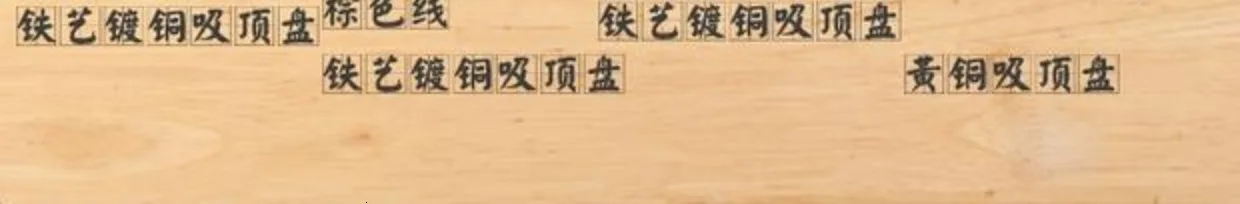 铁艺镀铜吸顶盘
棕色线
铁艺镀铜吸顶盘
铁艺镀铜吸顶盘
黄铜吸顶盘